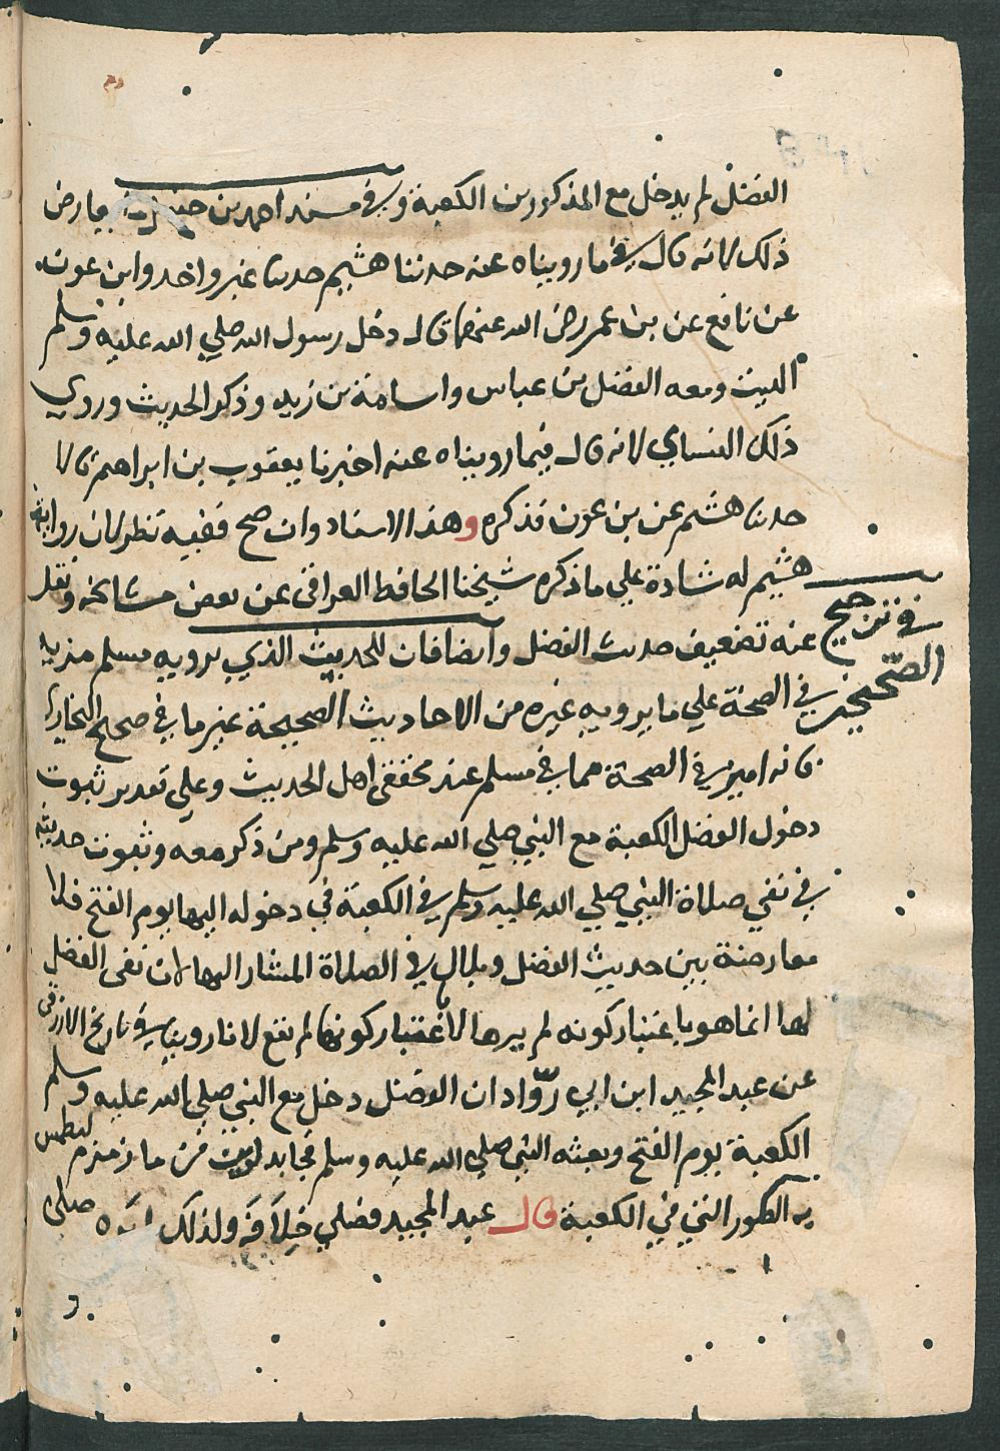 الفضل لم يدخل مع المذكورين الكعبة وفي مسند احمد بن حنبل ما يعارض
ذلك لانه قال فيما رويناه عنه حدثنا هشيم حدثنا غير واحد وابن عون
عن نافع عن بن عمر رضي الله عنهما قال دخل رسول الله صلي الله عليه وسلم
البيت ومعه الفضل بن عباس واسامة بن زيد وذكر الحديث وروي
ذلك النساي لانه قال فيما رويناه عنه اخبرنا يعقوب بن ابراهيم قال
حدثنا هشيم عن بن عون فذكره وهذا الاسناد وان صح ففيه نظر لان رواية
هشيم له شاذة علي ما ذكره شيخنا الحافظ العراقي عن بعض مشائخه ونقل
عنه تضعيف حديث الفضل وايضا فان للحديث الذي يرويه مسلم مزية
في الصحة علي ما يرويه غيره من الاحاديث الصحيحة غير ما في صحيح البخاري
فانه اميز في الصحة مما في مسلم عند محققي اهل الحديث وعلي تقدير ثبوت
دخول الفضل الكعبة مع النبي صلي الله عليه وسلم ومن ذكر معه وثبوت حديثه
في نفي صلاة النبي صلي الله عليه وسلم في الكعبة في دخوله اليها يوم الفتح فلا
معارضة بين حديث الفضل وبلال في الصلاة المشار اليها لان نفي الفضل
لها انما هو باعتبار كونه لم يرها لا باعتبار كونها لم تقع لانا روينا في تاريخ الازرقي
عن عبد المجيد ابن ابي روّاد ان الفضل دخل مع النبي صلي الله عليه وسلم
الكعبة يوم الفتح وبعثه النبي صلي الله عليه وسلم فجا بذنوب من ما زمزم ليطمس
به الصور التي في الكعبة قال عبد المجيد فصلي خلافه ولذلك لم يره صلي
في ترجيح
الصحيحين